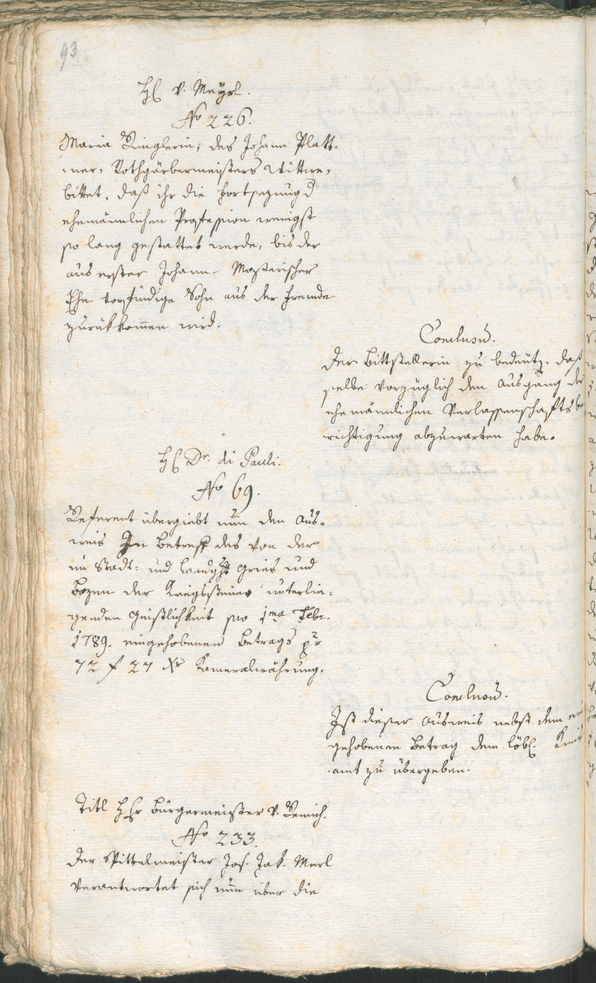 93
H. v. Mayrl.
No 226.
Maria Ringlerin, des Johann Platt-
ner, Rothgärbermeisters Wittwe,
bittet, daß ihr die Fortsezung d
ehemännlichen Profession wenigst
so lang gestattet werde, bis der
aus erster Johann Moserischer
Ehe vorfindige Sohn aus der Fremde
zurükkommen wird.
Conclusū.
Der Bittstellerin zu bedeütē, daß
selbe vorzüglich den Ausgang der
ehemännlichen Verlassenschaftsbe
richtigung abzuwarten habe.
H. Dr. di Pauli.
No 69.
Referent übergiebt nun den Aus-
weis In Betreff des von der
im Stadt- und Landght Gries und
Bozen der Kriegssteuer unterlie-
genden Geistlichkeit pro 1ma Febr.
1789. eingehobenen Betrags pr
72 f 27 Xr Kameralwährung.
Conclusū.
Ist dieser Ausweis nebst dem ein
gehobenen Betrag dem löbl.
amt zu übergeben.
Titl Hr Bürgermeister v.
No 233.
Der Spittelmeister Jos. Jak. Merl
verantwortet sich nun über die